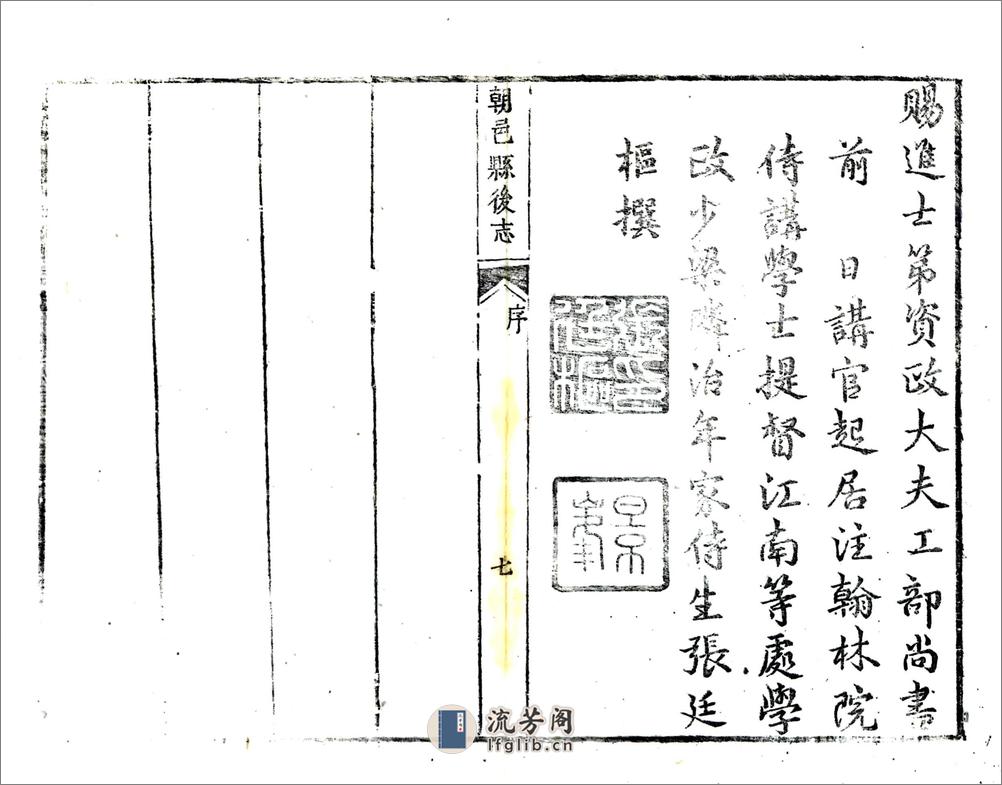 賜進士第資政大夫工部尚書
前 日講官起居注翰林院
侍講學士提督江南等處學
政少梁疇治年家侍生張廷
樞撰
張廷樞印
景峯
朝邑縣後志
序
七
流芳阁
lfglib.cn